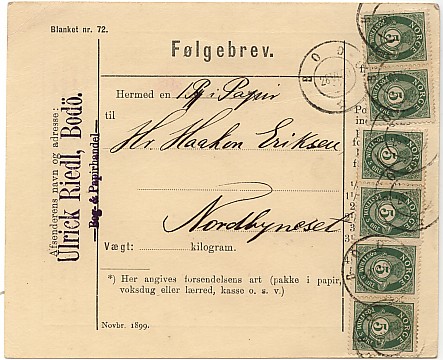 Blanket nr. 72.
Følgebrev.
Afsenderens navn og adresse:
Ulrick Riedl, Bodö.
Bog & Papirhandel
Hermed en 1 Pk i Papir
til
Hr. Haakon Eriksen
Nordbyneset
Vægt: kilogram.
*) Her angives forsendelsens art (pakke i papir,
voksdug eller lærred, kasse o. s. v.)
Novbr. 1899.
BODØ
NORGE
5
NORGE
5
NORGE
5
NORGE
5
NORGE
5
NORGE
5